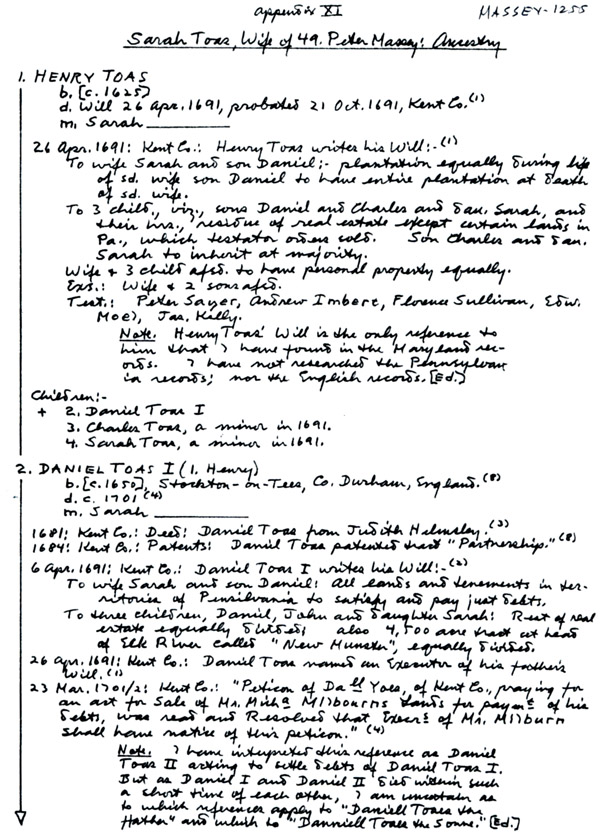 Appendix XI
MASSEY-1255
Sarah Toas, Wife of 49. Peter Massey: Ancestry
1. HENRY TOAS
b. [c. 1625]
d. Will 26 Apr. 1691, probated 21 Oct. 1691, Kent Co. (1)
m. Sarah
26 Apr. 1691: Kent Co.: Henry Toas writes his Will:- (1)
To wife Sarah and son Daniel:- plantation equally during life
of sd. wife son Daniel to have entire plantation at death
of sd. wife.
To 3 child., viz., sons Daniel and Charles and dau. Sarah, and
their hrs., residue of real estate except certain lands in
Pa., which testator orders sold. Son Charles and dau.
Sarah to inherit at majority.
Wife + 3 child afsd. to have personal property equally.
Exs.: Wife + 2 sons afsd.
Test.: Peter Sayer, Andrew Imbert, Florence Sullivan, Edw.
Moe), Jas. Kelly.
Note. Henry Toas' Will is the only reference to
him that I have found in the Maryland rec-
ords. I have not researched the Pennsylvan
ia records; nor the English records. [Ed.]
Children:-
+ 2. Daniel Toas I
3. Charles Toas, a minor in 1691.
4. Sarah Toas, a minor in 1691.
2. DANIEL TOAS I (1. Henry)
b. [c. 1650], Stockton-on-Tees, Co. Durham, England. (8)
d. c. 1701 (4)
m. Sarah
1681: Kent Co.: Deed: Daniel Toas from Judith Helmsley. (3)
1684: Kent Co.: Patents: Daniel Toas patented tract "Partnership." (8)
6 Apr. 1691: Kent Co.: Daniel Toas I writes his Will:- (2)
To wife Sarah and son Daniel: All lands and tenements in ter-
ritories of Pensilvania to satisfy and pay just debts.
To three children, Daniel, John and daughter Sarah: Rest of real
estate equally divided; also 4,500 acre tract at head
of Elk River called "New Munster", equally divided.
26 Apr. 1691: Kent Co.: Daniel Toas named an Executor of his father's
Will. (1)
23 Mar. 1701/2: Kent Co.: "Peticon of Da ll Yoes, of Kent Co., praying for
an act for Sale of Mr. Mich a Milbourns Lands for paymt of his
debts, was read and Resolved that Execrs of Mr. Milburn
shall have notice of this peticon." (4)
Note. I have interpreted this reference as Daniel
Toas II acting to settle debts of Daniel Toas I.
But as Daniel I and Daniel II died within such
a short time of each other, I am uncertain as
to which references apply to "Daniell Toaes the
Ffather" and which to "Danniell Toaes the Sonne." [Ed.]